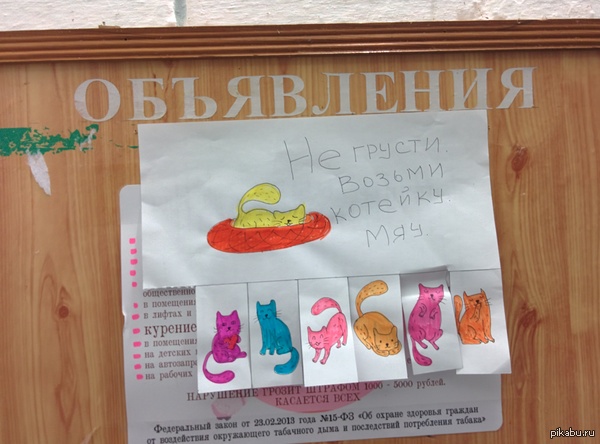 ОБЪЯВЛЕНИЯ
Не грусти.
Возьми
котейку.
Мяу.
общественно
в помещени
в лифтах и
курение
в помещени
на детских
на автозапр
на рабочих
НАРУШЕНИЕ ГРОЗИТ ШТРАФОМ 1000 - 5000 рублей.
КАСАЕТСЯ ВСЕХ
Федеральный закон от 23.02.2013 года №15-ФЗ «Об охране здоровья граждан
от воздействия окружающего табачного дыма и последствий потребления табака»
pikabu.ru